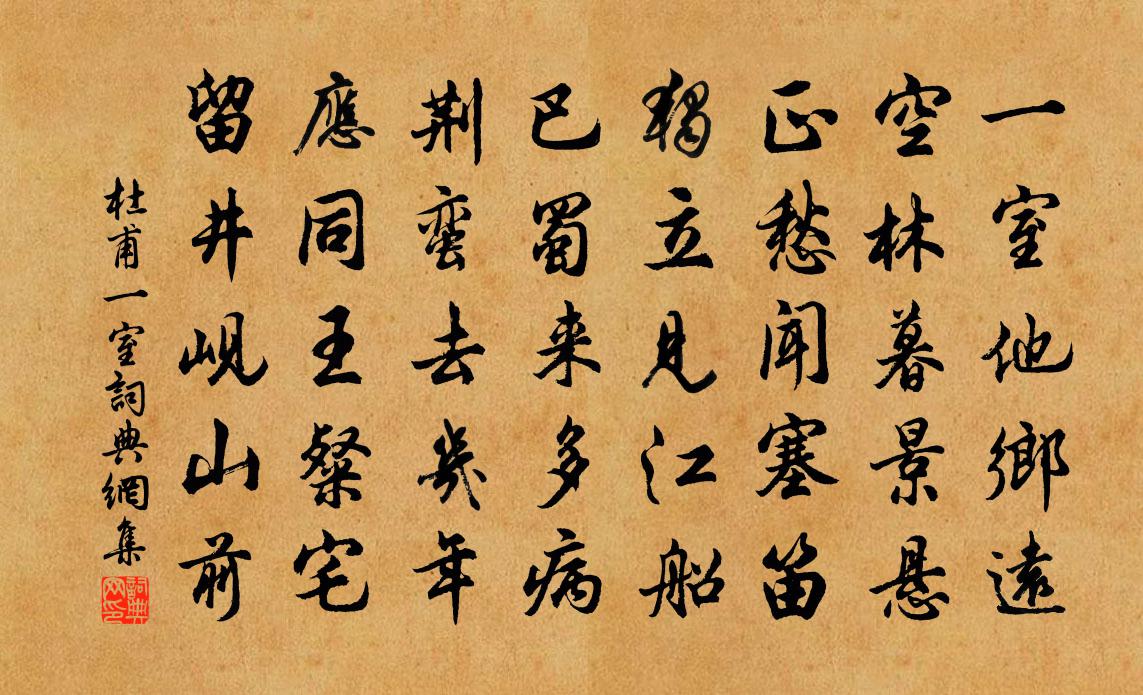 一室他鄉遠
空林暮景悬
正愁聞塞笛
獨立見江船
巴蜀来多病
荆蛮去幾年
應同王粲宅
留井峴山前
杜甫一室詞典網集
詞典网印